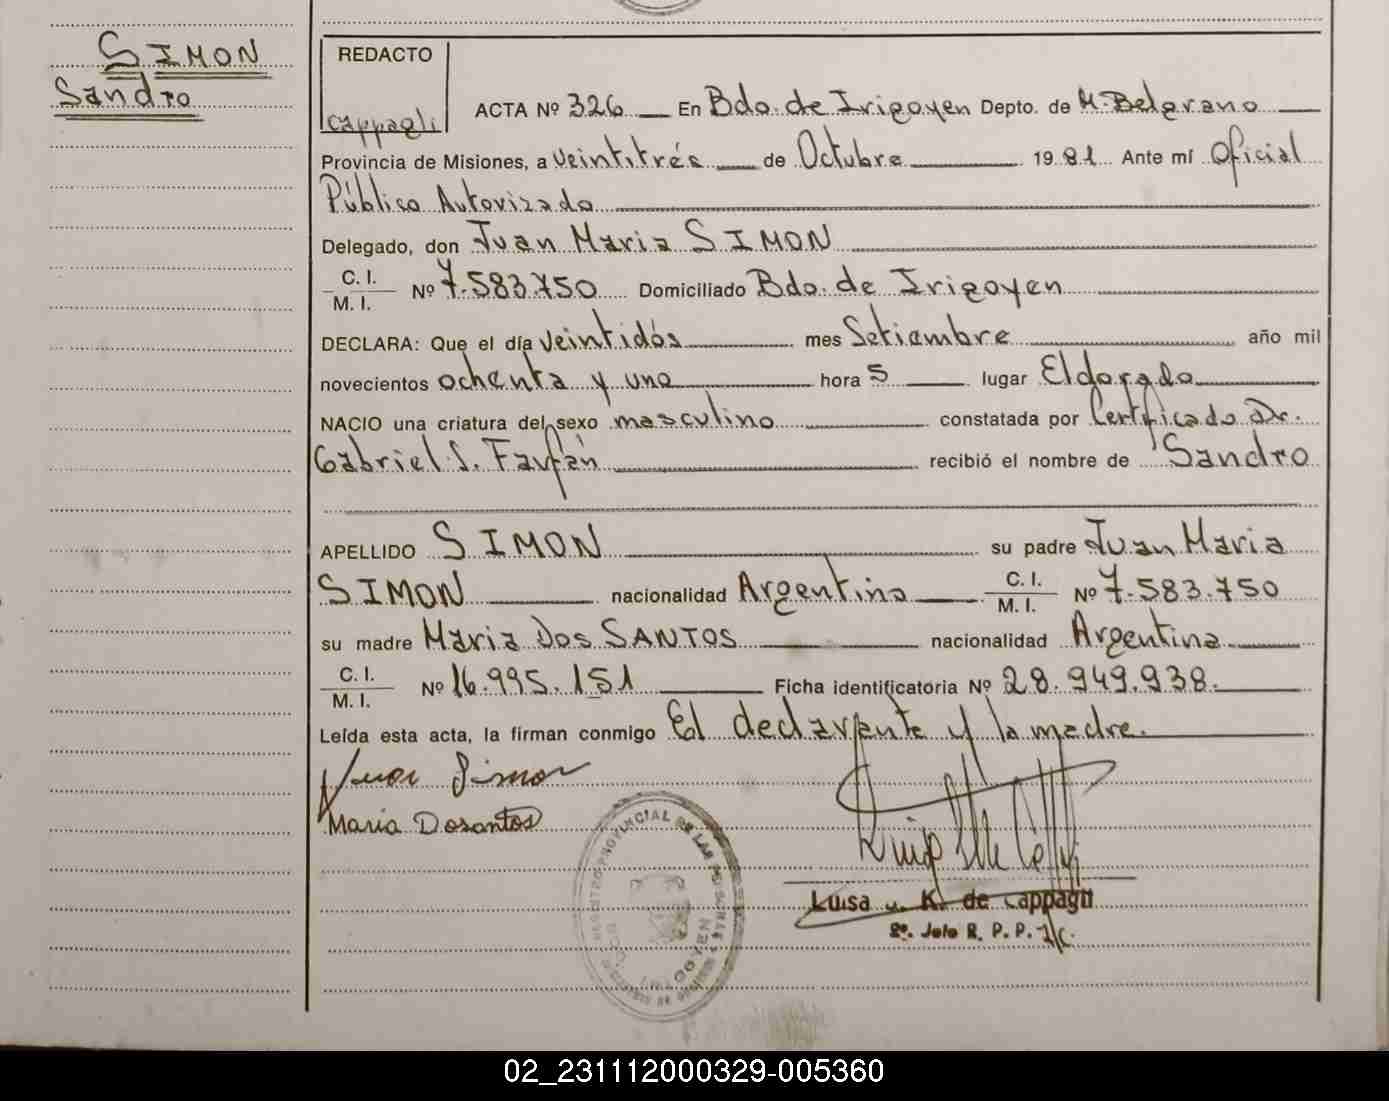 SIMON
Sandro
REDACTO
Cappagli
ACTA Nº 326 En Bdo. de Irigoyen Depto. de M. Belgrano
Provincia de Misiones, a veintitrés de Octubre 1981 Ante mí Oficial
Público Autorizado
Delegado, don Juan Maria SIMON
C. I.
M. I. Nº 7.583.750 Domiciliado Bdo. de Irigoyen
DECLARA: Que el día veintidós mes Setiembre año mil
novecientos ochenta y uno hora 5 lugar Eldorado
NACIO una criatura del sexo masculino constatada por Certificado Dr.
Gabriel S. Farfán recibió el nombre de Sandro
APELLIDO SIMON su padre Juan Maria
SIMON nacionalidad Argentina C. I. M. I. Nº 7.583.750
su madre Maria Dos SANTOS nacionalidad Argentina
C. I.
M. I. Nº 16.995.151 Ficha identificatoria Nº 28.949.938.
Leída esta acta, la firman conmigo El declarante y la madre.
Juan Simon
Maria Dosantos
REGISTRO PROVINCIAL DE LAS PERSONAS
Luisa K. de Cappagli
2º. Jefe R. P. P. I/C.
02_231112000329-005360